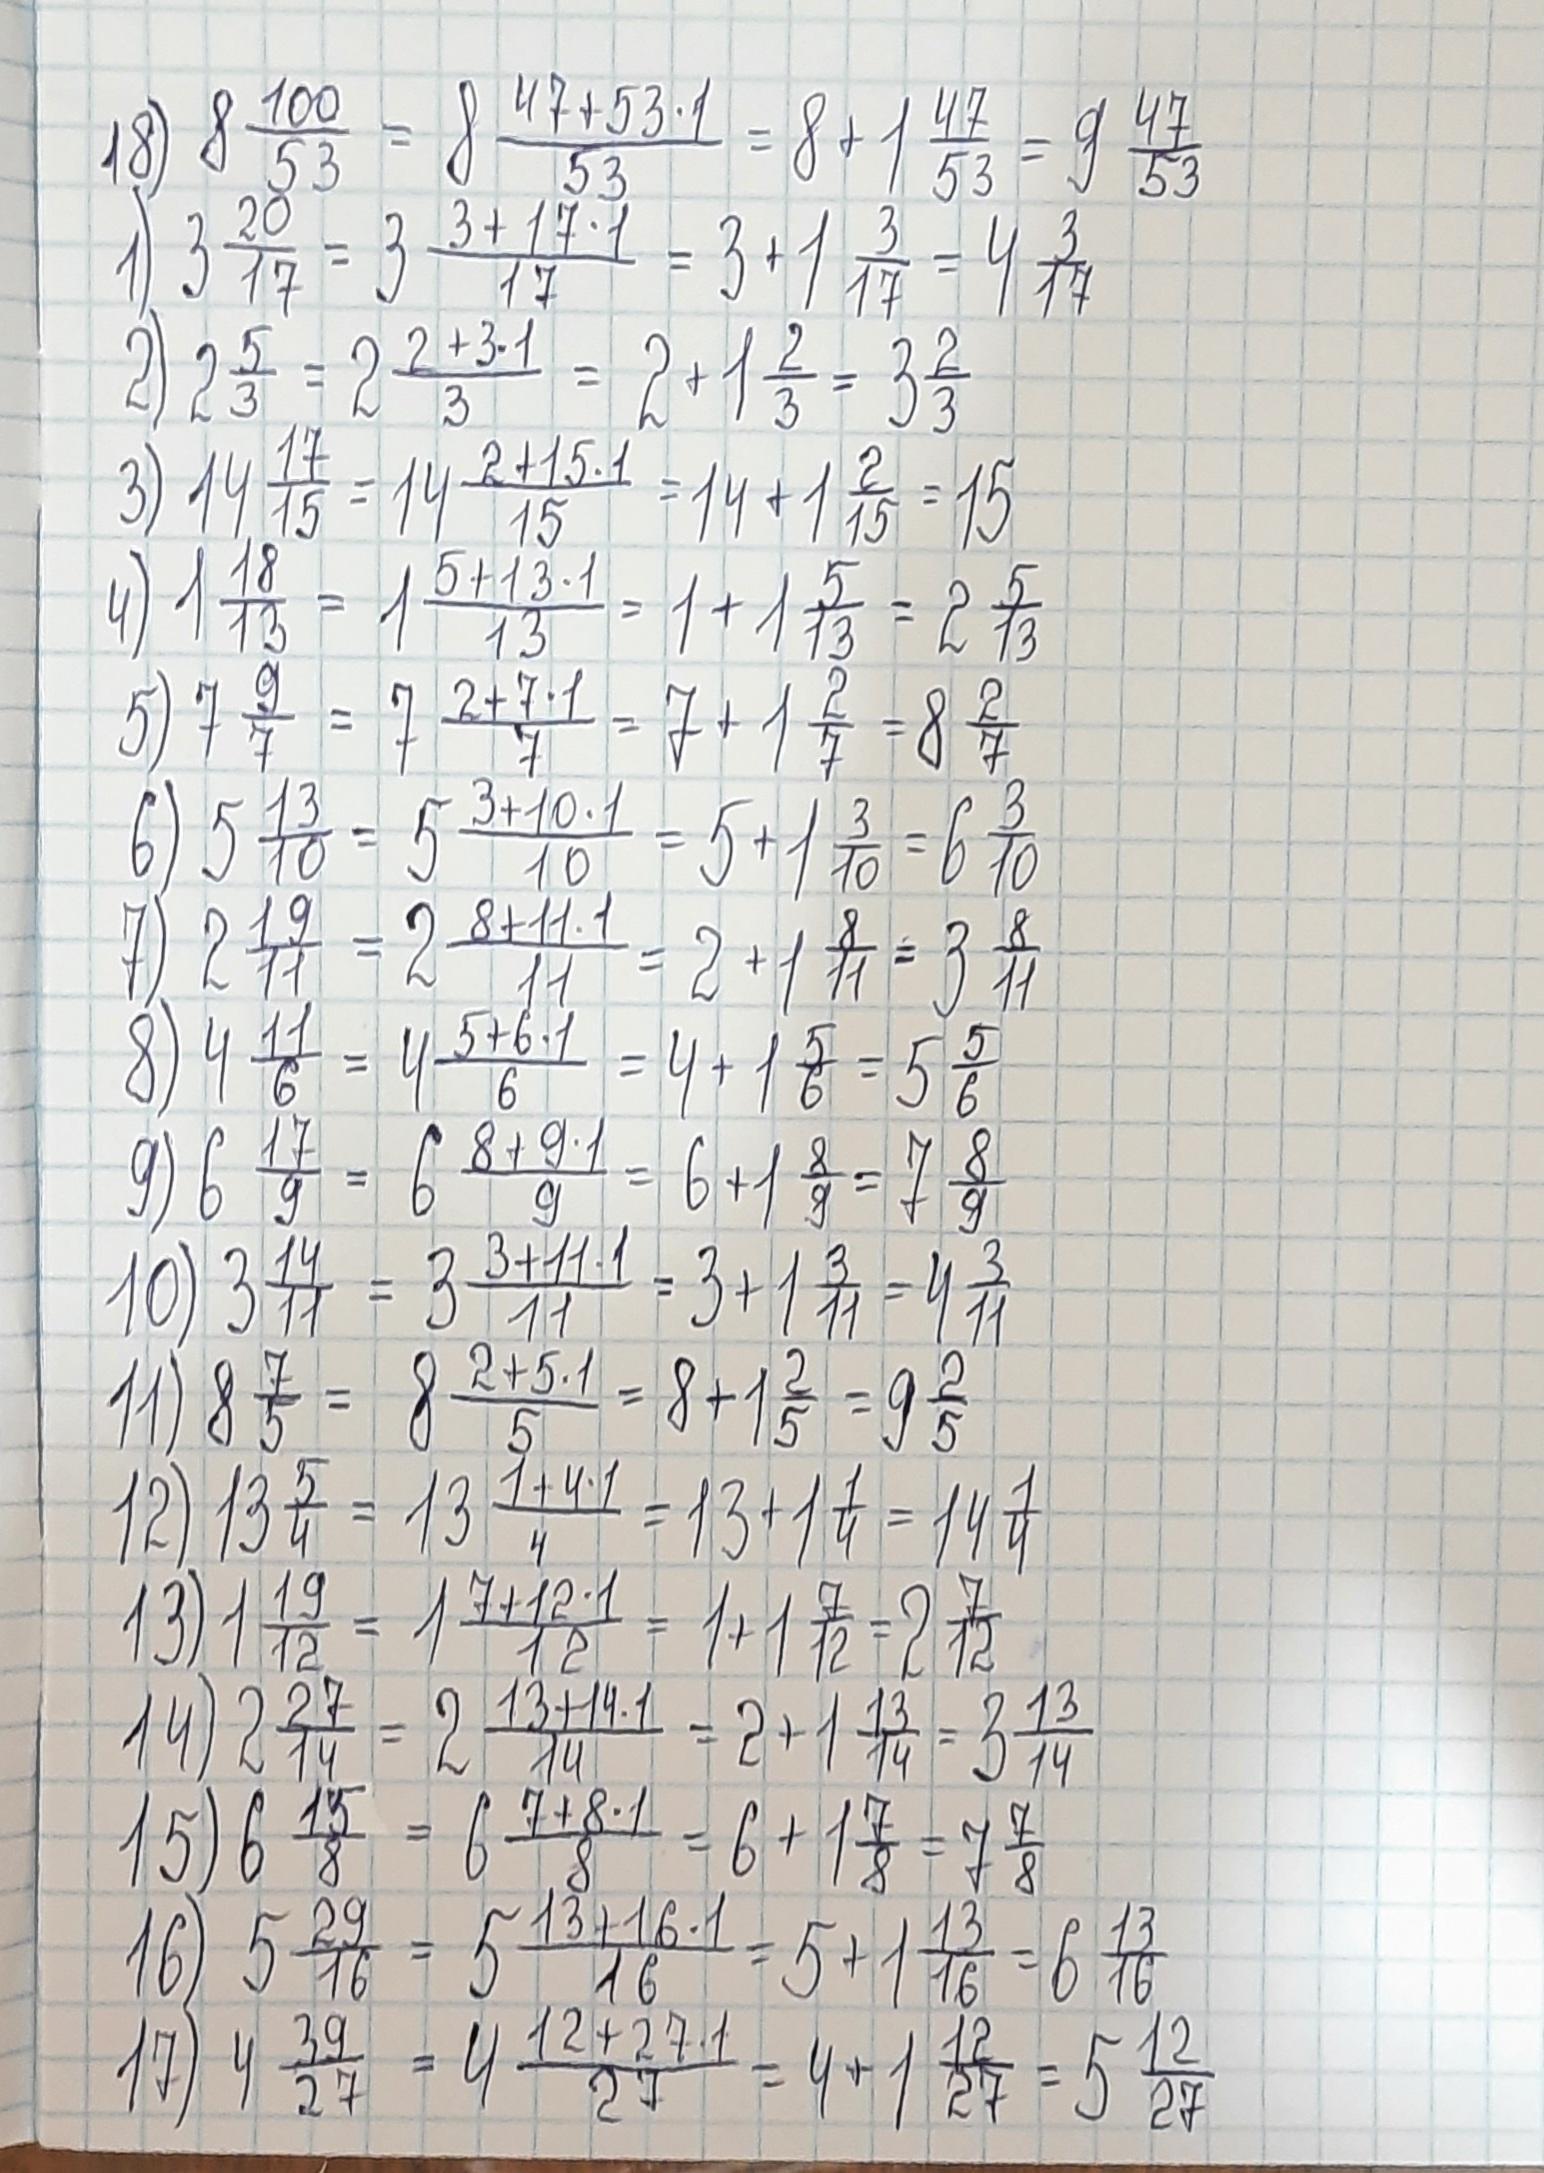 18) 8 100/53 = 8 (47+53·1)/53 = 8 + 1 47/53 = 9 47/53
1) 3 20/17 = 3 (3+17·1)/17 = 3 + 1 3/17 = 4 3/17
2) 2 5/3 = 2 (2+3·1)/3 = 2 + 1 2/3 = 3 2/3
3) 14 17/15 = 14 (2+15·1)/15 = 14 + 1 2/15 = 15
4) 1 18/13 = 1 (5+13·1)/13 = 1 + 1 5/13 = 2 5/13
5) 7 9/7 = 7 (2+7·1)/7 = 7 + 1 2/7 = 8 2/7
6) 5 13/10 = 5 (3+10·1)/10 = 5 + 1 3/10 = 6 3/10
7) 2 19/11 = 2 (8+11·1)/11 = 2 + 1 8/11 = 3 8/11
8) 4 11/6 = 4 (5+6·1)/6 = 4 + 1 5/6 = 5 5/6
9) 6 17/9 = 6 (8+9·1)/9 = 6 + 1 8/9 = 7 8/9
10) 3 14/11 = 3 (3+11·1)/11 = 3 + 1 3/11 = 4 3/11
11) 8 7/5 = 8 (2+5·1)/5 = 8 + 1 2/5 = 9 2/5
12) 13 5/4 = 13 (1+4·1)/4 = 13 + 1 1/4 = 14 1/4
13) 1 19/12 = 1 (7+12·1)/12 = 1 + 1 7/12 = 2 7/12
14) 2 27/14 = 2 (13+14·1)/14 = 2 + 1 13/14 = 3 13/14
15) 6 15/8 = 6 (7+8·1)/8 = 6 + 1 7/8 = 7 7/8
16) 5 29/16 = 5 (13+16·1)/16 = 5 + 1 13/16 = 6 13/16
17) 4 39/27 = 4 (12+27·1)/27 = 4 + 1 12/27 = 5 12/27